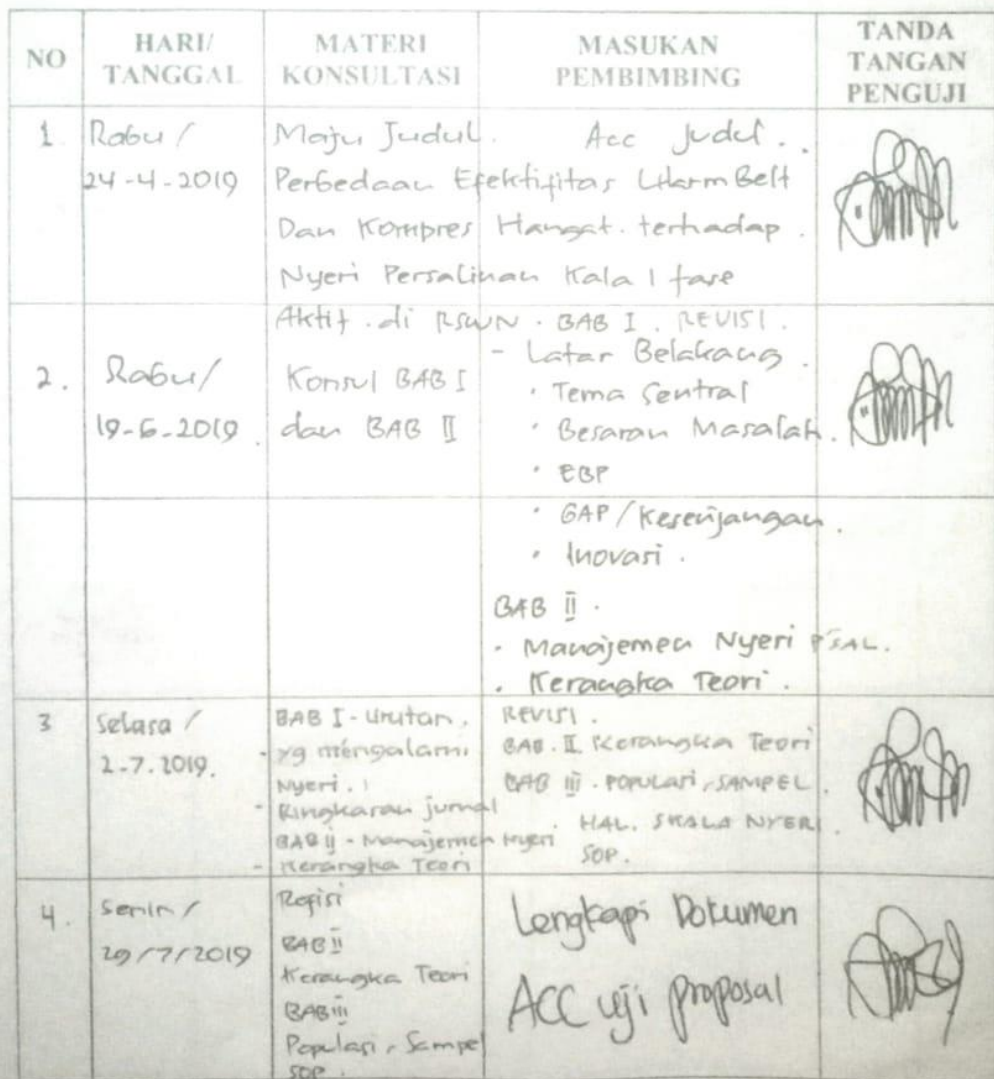 NO HARI/ TANGGAL MATERI KONSULTASI MASUKAN PEMBIMBING TANDA TANGAN PENGUJI
1. Rabu / Maju Judul. Acc Judul.
24-4-2019 Perbedaan Efektifitas Warm Belt
Dan Kompres Hangat terhadap
Nyeri Persalinan Kala I fase
Aktif di RSWN. BAB I. REVISI.
- Latar Belakang.
2. Rabu/ Konsul BAB I
• Tema Sentral
19-6-2019. dan BAB II
• Besaran Masalah.
• EBP
• GAP / Kesenjangan.
• Inovasi.
BAB II.
• Manajemen Nyeri PSAL.
• Kerangka Teori.
3 Selasa / 2-7.2019.
BAB I - Urutan.
- yg mengalami
Nyeri.
- Ringkasan jurnal
BAB II - Manajemen Nyeri
- Kerangka Teori
REVISI.
BAB. II Kerangka Teori
BAB III. POPULASI, SAMPEL.
HAL. SKALA NYERI.
SOP.
4. Senin /
29/7/2019
Refisi
BAB II
Kerangka Teori
BAB III
Populasi, Sampel
SOP.
Lengkapi Dokumen
ACC uji proposal